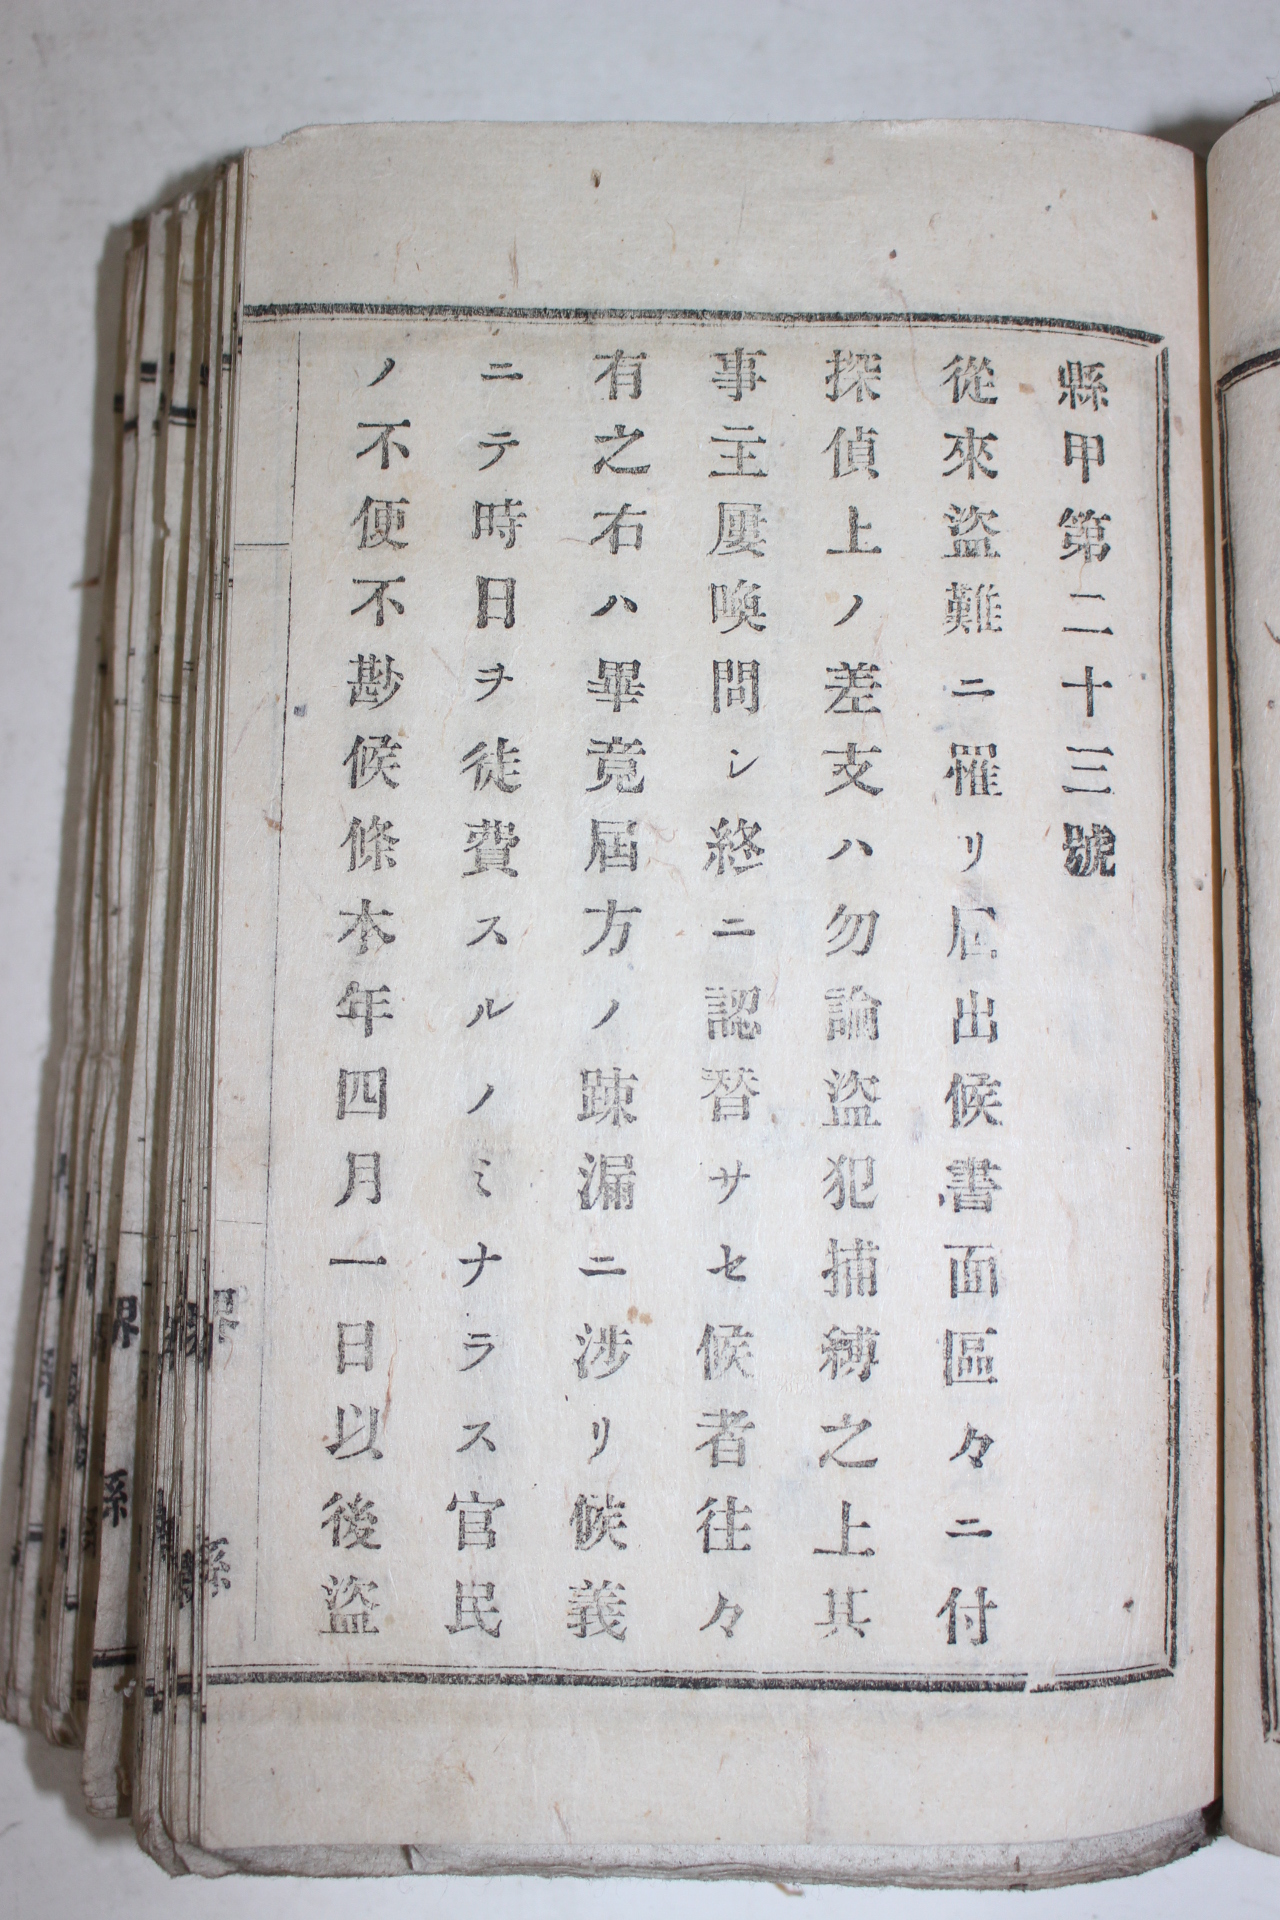 縣甲第二十三號
從來盜難ニ罹リ屆出候書面區々ニ付
探偵上ノ差支ハ勿論盜犯捕縛之上其
事主屢喚問シ終ニ認替サセ候者往々
有之右ハ畢竟屆方ノ踈漏ニ涉リ候義
ニテ時日ヲ徒費スルノミナラス官民
ノ不便不尠候條本年四月一日以後盜
界
縣
界
縣